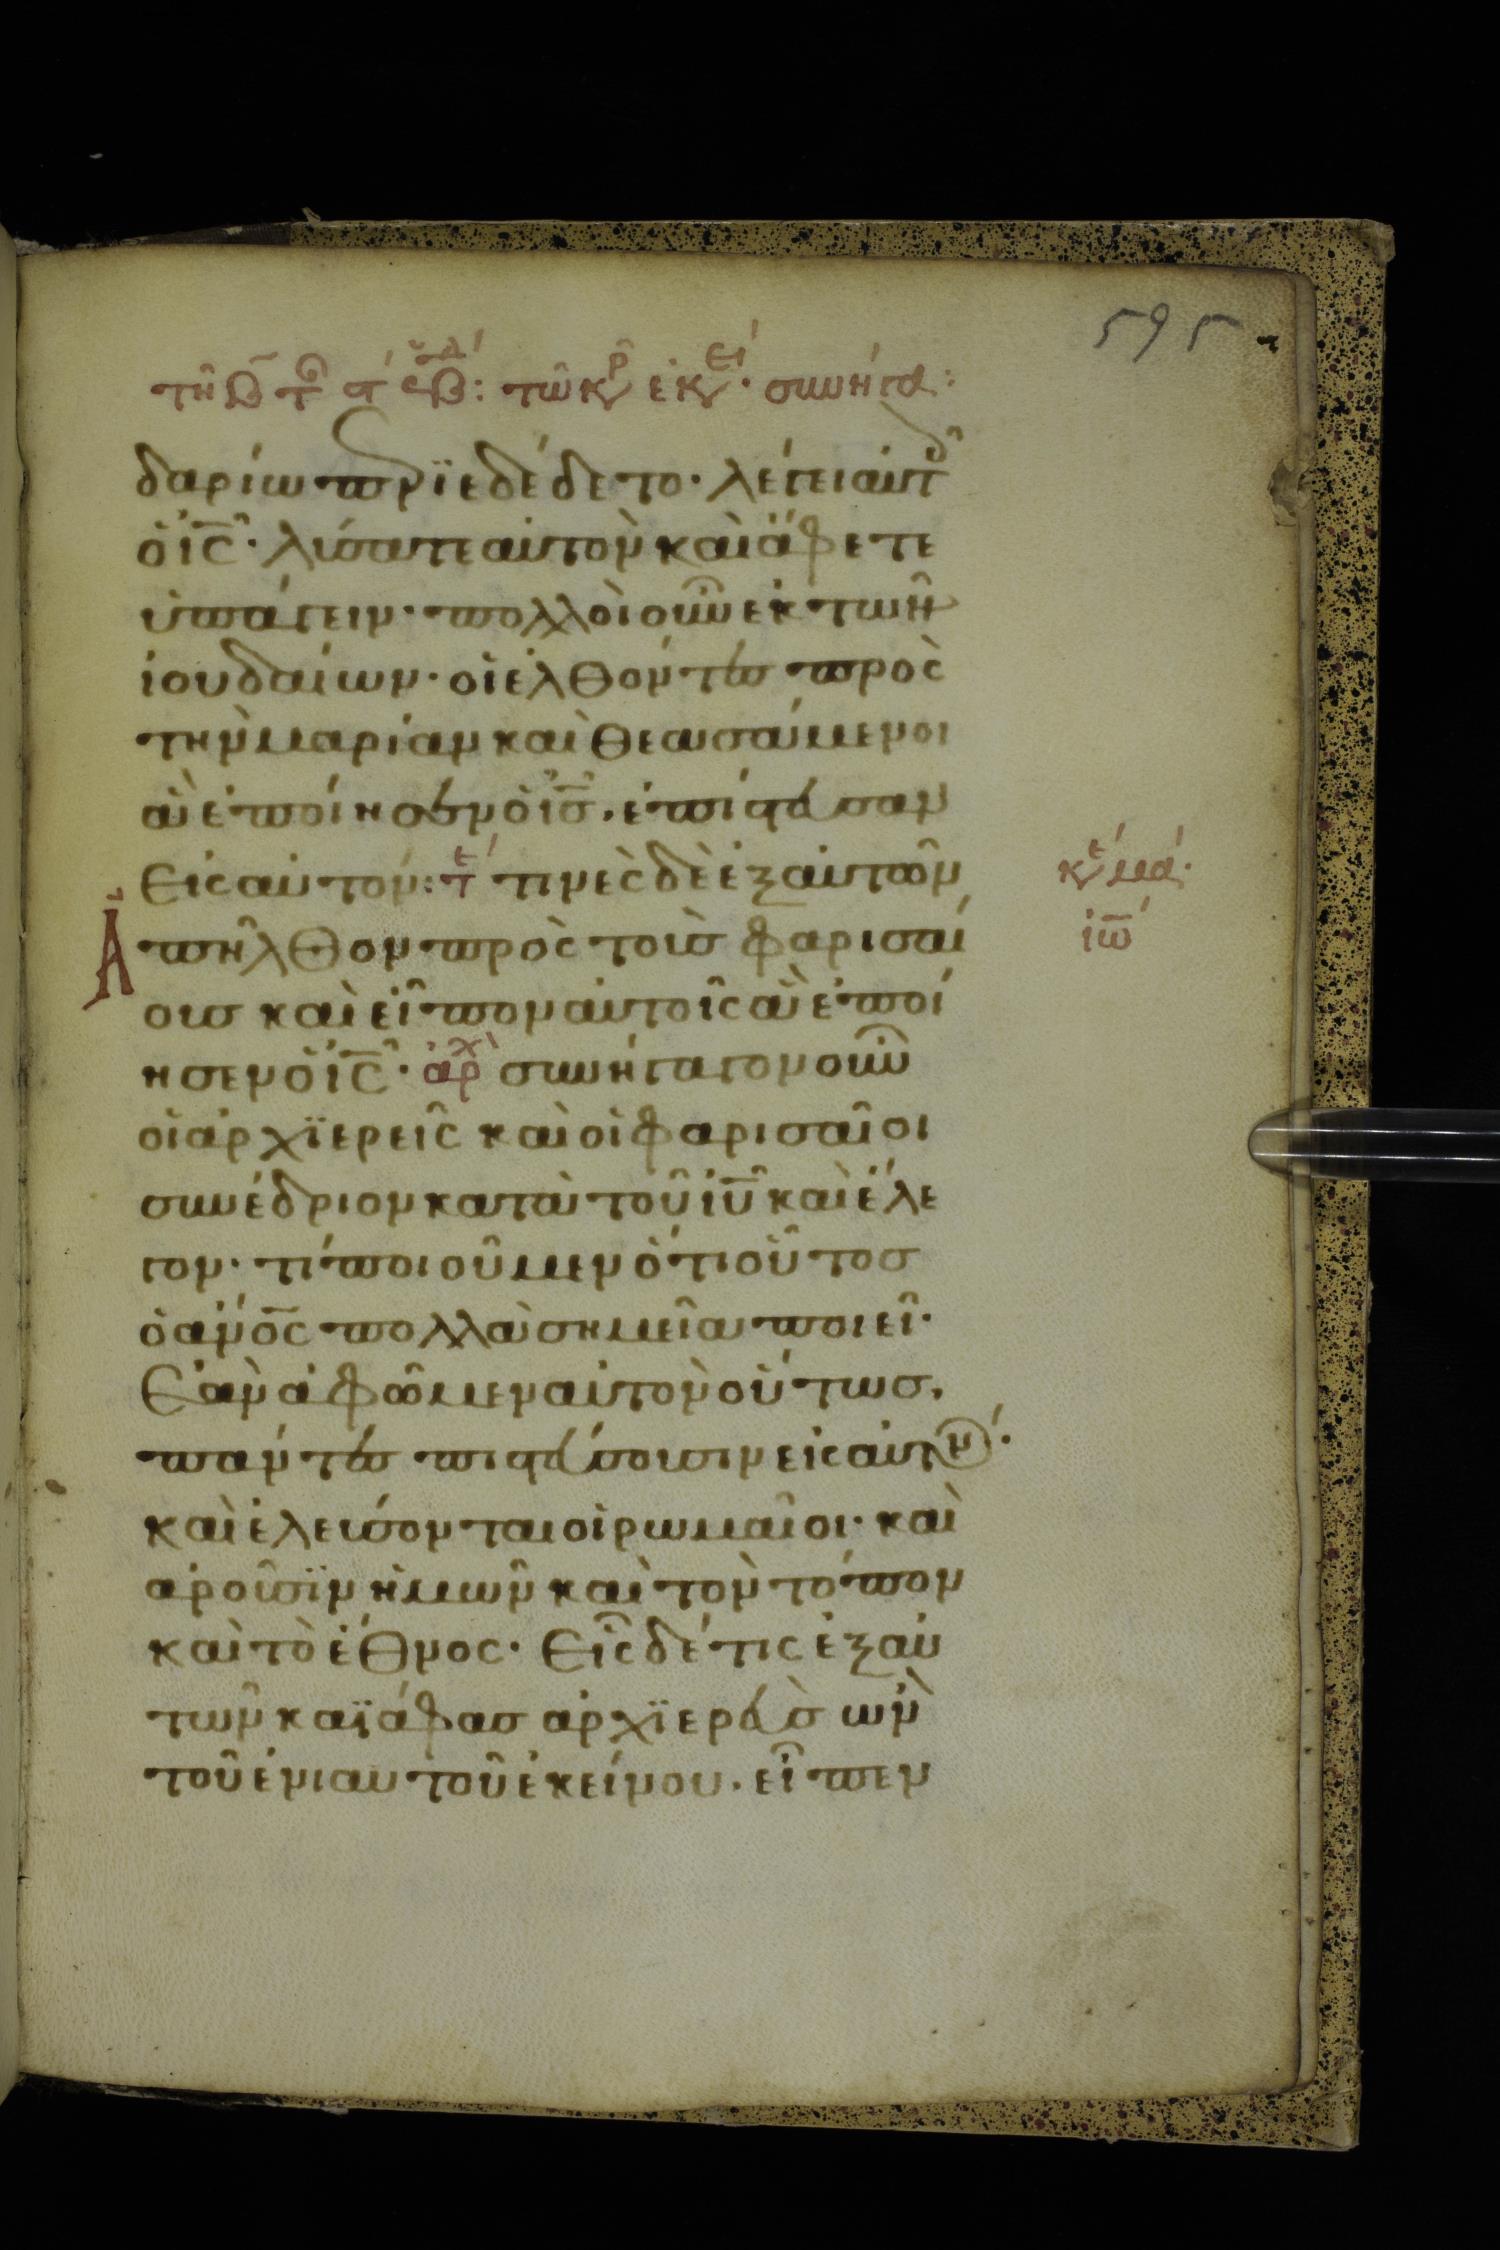 595
τῆ β τῆς ϛ ἑβδ: τῶ κρ ἐκει· συνήγα:
δαρίω περϊεδέδετο· λέγει αὐτοῖς
ὁ ἰς· λύσατε αὐτὸν καὶ ἄφετε
ὑπάγειν· πολλοὶ οὖν ἐκ τῶν
ἰουδαίων· οἱ ἐλθόντες πρὸς
τὴν μαρίαν καὶ θεασάμενοι
ἃ ἐποίησεν ὁ ἰς, ἐπίστευσαν
Εἰς αὐτόν: τε τινὲς δὲ ἐξ αὐτῶν
κε μα·
ιω
Ἀπῆλθον πρὸς τοὺς φαρισαί
ους καὶ εἶπον αὐτοῖς ἃ ἐποί
ησεν ὁ ἰς· ἀρχ συνήγαγον οὖν
οἱ ἀρχϊερεῖς καὶ οἱ φαρισαῖοι
συνέδριον κατὰ τοῦ ἰυ καὶ ἔλε
γον· τί ποιοῦμεν ὅτι οὗτος
ὁ ἀνος πολλὰ σημεῖα ποιεῖ·
Ἐὰν ἀφῶμεν αὐτὸν οὕτως,
πάντες πιστεύσουσιν εἰς αὐτόν·
καὶ ἐλεύσονται οἱ ρωμαῖοι· καὶ
ἀροῦσϊν ἡμῶν καὶ τὸν τόπον
καὶ τὸ ἔθνος· Εἷς δέ τις ἐξ αὐ
τῶν καϊάφας ἀρχϊερεὺς ὢν
τοῦ ἐνιαυτοῦ ἐκείνου· εἶπεν